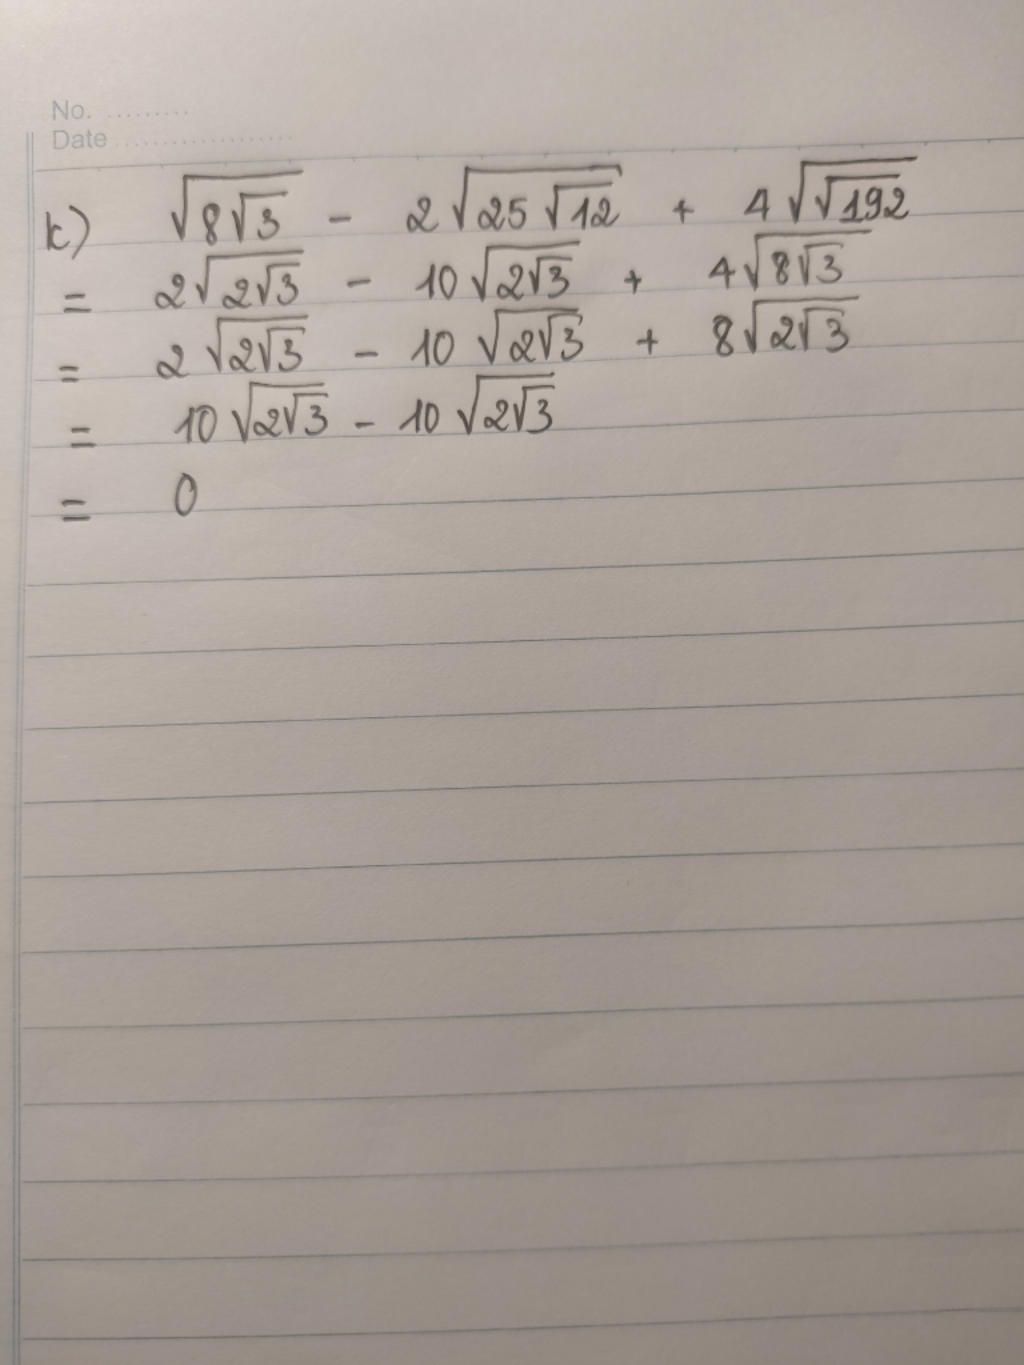 No. .........
Date ...................
k) √(8√3) - 2√(25√12) + 4√(√192)
= 2√(2√3) - 10√(2√3) + 4√(8√3)
= 2√(2√3) - 10√(2√3) + 8√(2√3)
= 10√(2√3) - 10√(2√3)
= 0